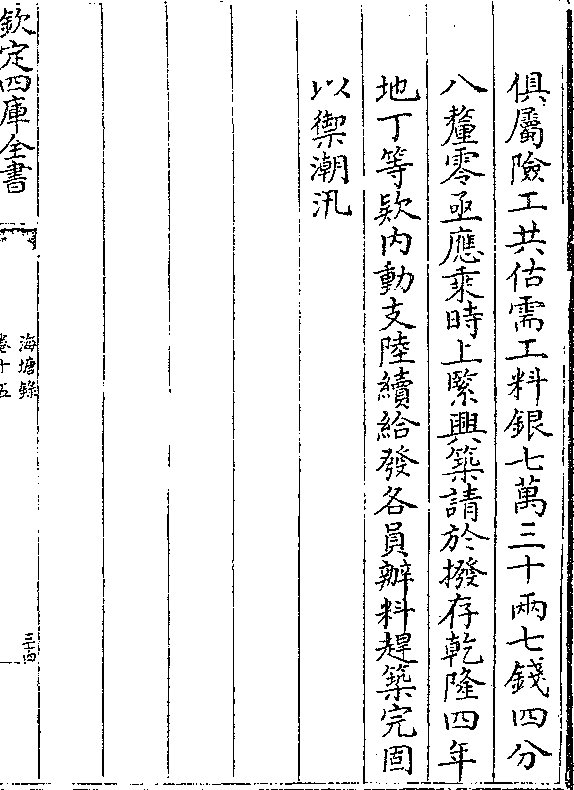 俱屬險工共估需工料銀七萬三十兩七錢四分
八釐零亟應乘時上緊興築請於撥存乾隆四年
地丁等欵内動支陸續給發各員辦料趕築完固
以禦潮汛
欽定四庫全書
海塘錄
卷十五
三十四